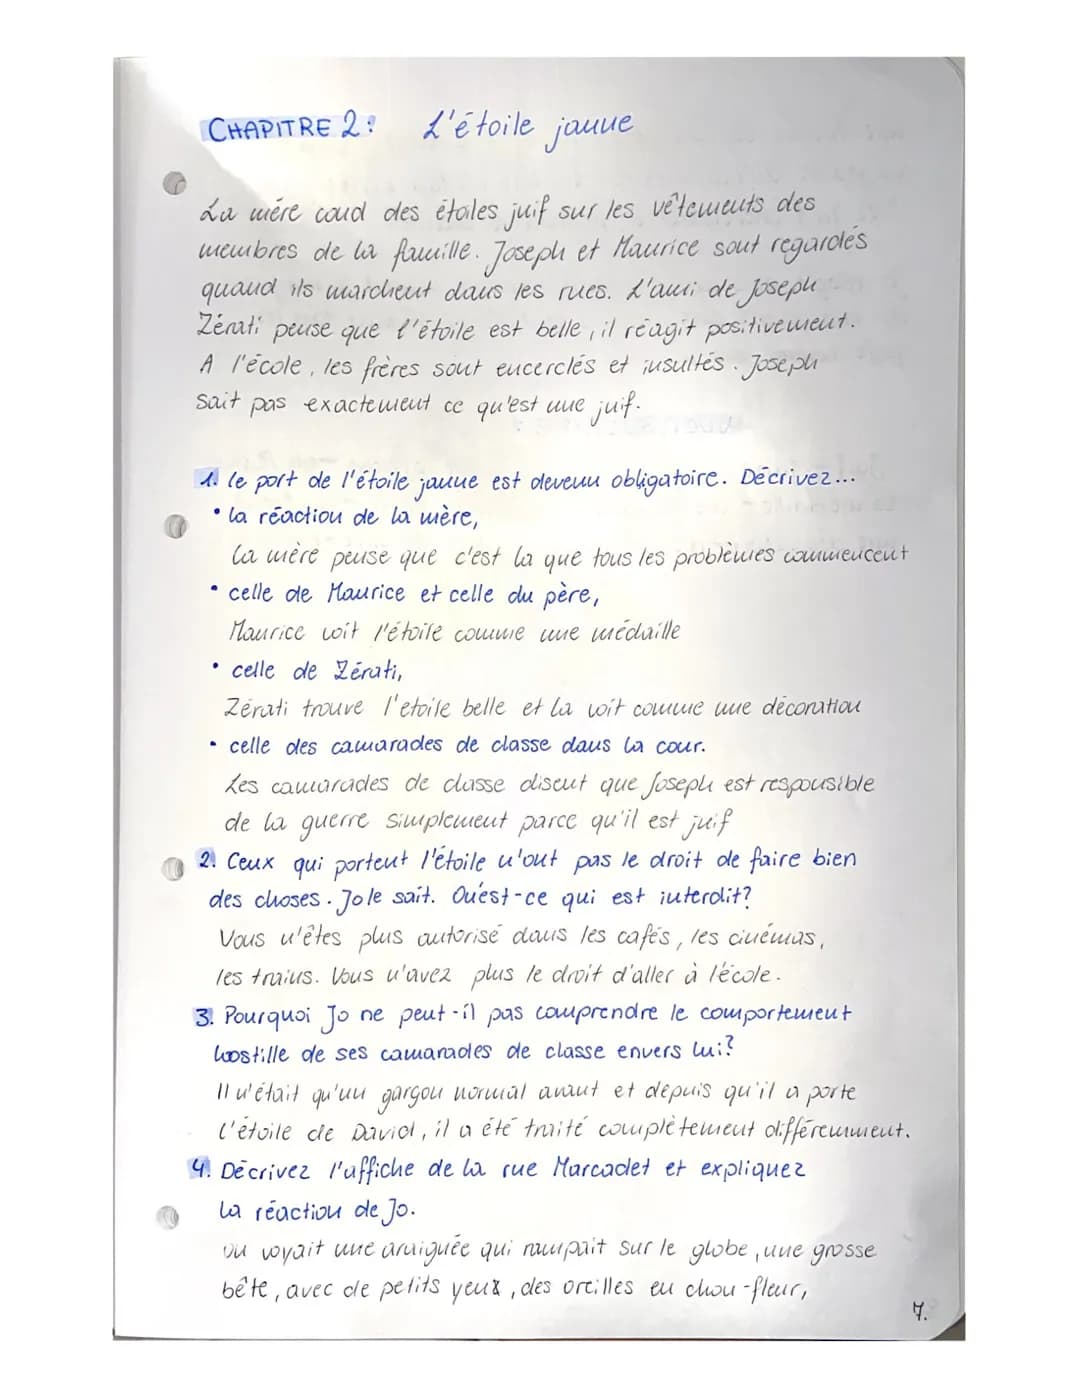 CHAPITRE 2: L'étoile jaune
La mére coud des étoiles juif sur les vêtements des
membres de la famille. Joseph et Maurice sont regardés
quand ils marchent dans les rues. L'ami de Joseph
Zérati pense que l'étoile est belle, il réagit positivement.
A l'école, les frères sont encerclés et insultés. Joseph
sait pas exactement ce qu'est une juif.
1. le port de l'étoile jaune est devenu obligatoire. Décrivez...
• la réaction de la mère,
La mère pense que c'est la que tous les problèmes commencent
• celle de Maurice et celle du père,
Maurice voit l'étoile comme une médaille
• celle de Zérati,
Zérati trouve l'etoile belle et la voit comme une décoration
• celle des camarades de classe dans la cour.
Les camarades de classe disent que Joseph est responsible
de la guerre simplement parce qu'il est juif
2. Ceux qui portent l'étoile n'ont pas le droit de faire bien
des choses. Jo le sait. Qu'est-ce qui est interdit?
Vous n'êtes plus autorisé dans les cafés, les cinémas,
les trains. Vous n'avez plus le droit d'aller à l'école.
3. Pourquoi Jo ne peut-il pas comprendre le comportement
hostille de ses camarades de classe envers lui?
Il n'était qu'un garçon normal avant et depuis qu'il a porte
l'étoile de David, il a été traité complètement différemment.
4. Décrivez l'affiche de la rue Marcadet et expliquez
la réaction de Jo.
on voyait une araignée qui rampait sur le globe, une grosse
bête, avec de petits yeux, des oreilles en chou-fleur,
7.